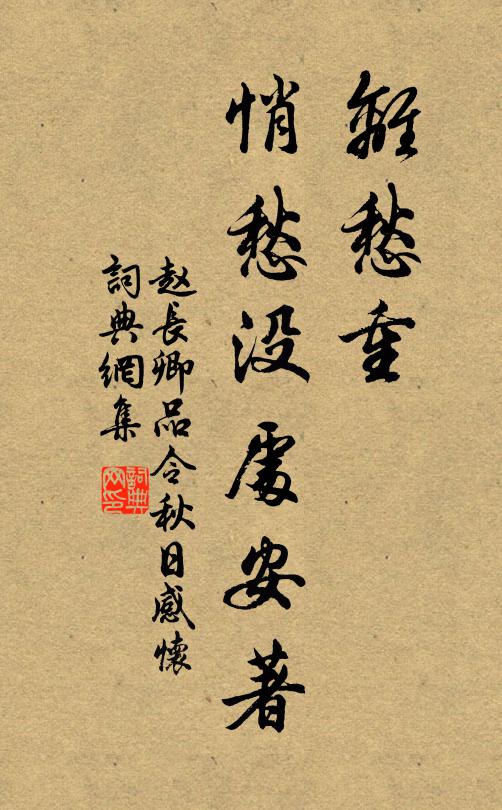 離愁重
悄愁没處安著
赵長卿品令秋日感懷
詞典網集
詞典網印